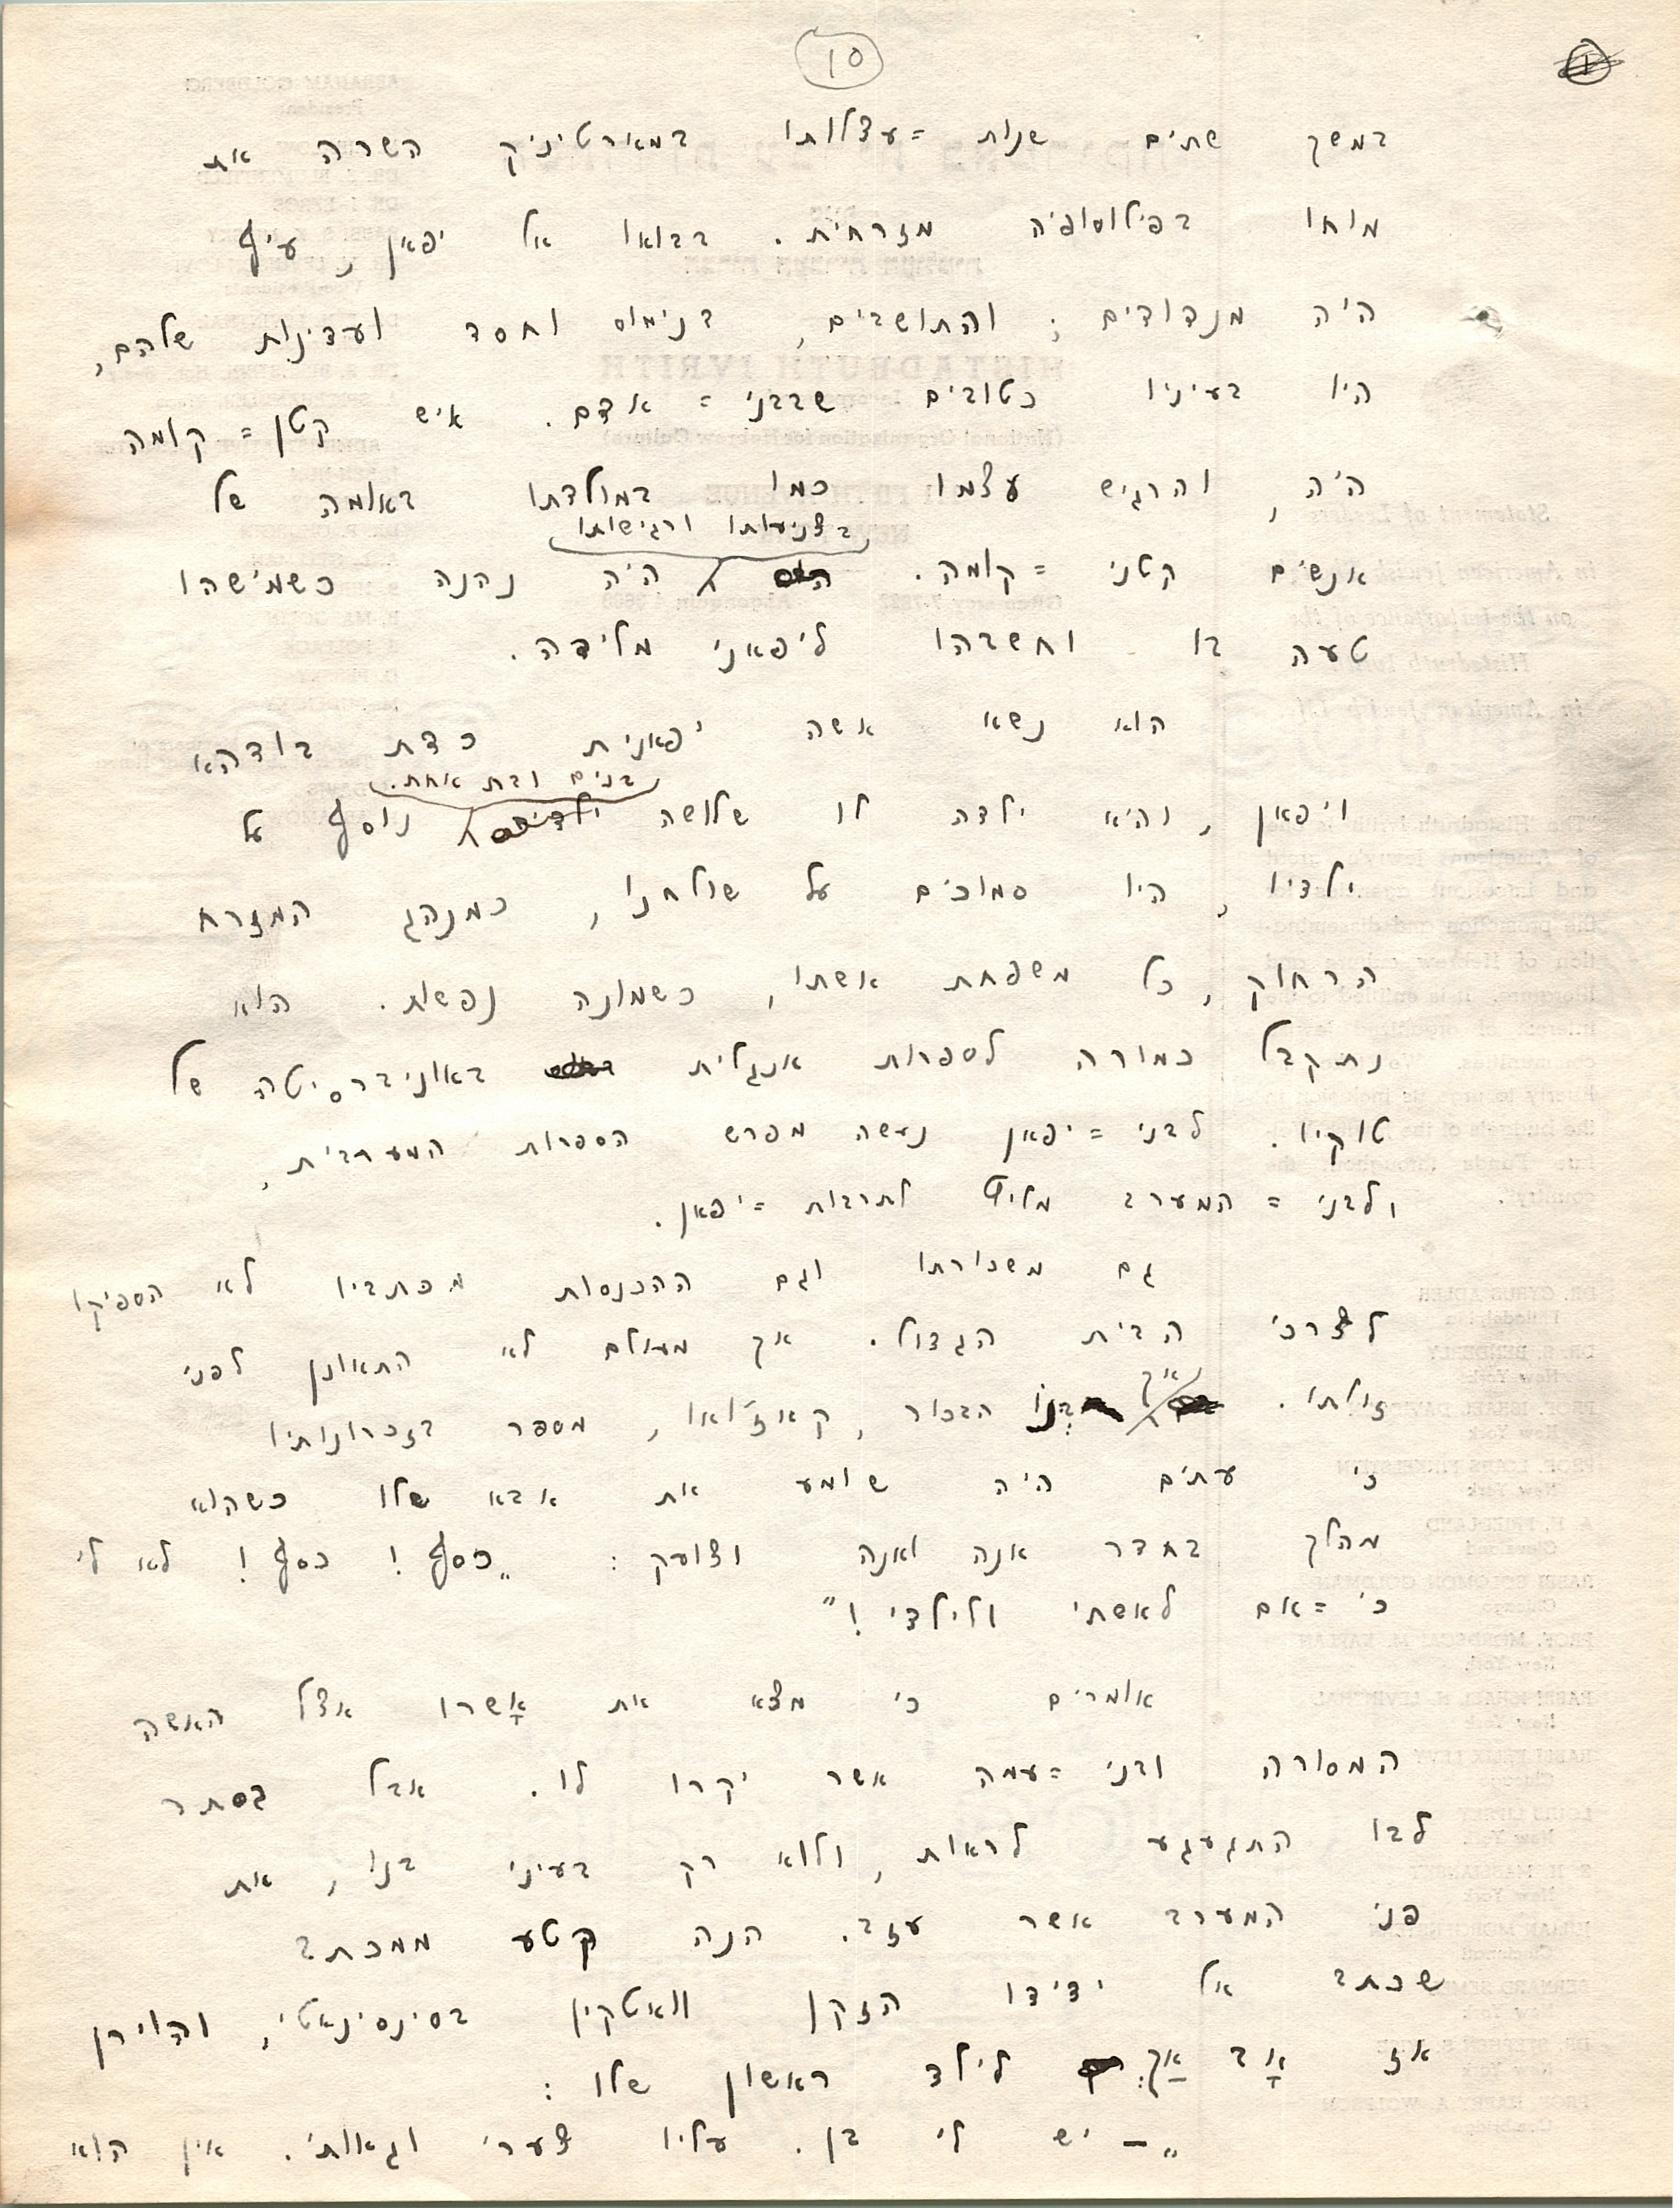 10
במשך שתים שנות =עצלותו במארטיניק השרה את
מוחו בפילוסופיה מזרחית. בבואו אל יפאן, עיף
היה מנדודים; והתושבים, בנימוס וחסד ועדינות שלהם,
היו בעיניו כטובים שבבני = אדם. איש קטן = קומה
היה, והרגיש עצמו כמו במולדתו באומה של
בצניעותו ורגישותו
אנשים קטני =קומה. היה נהנה כשמישהו
טעה בו וחשבהו ליפאני מלידה.
הוא נשא אשה יפאנית כדת בודהא
בנים ובת אחת.
ויפאן, והיא ילדה לו שלושה נוסף על
ילדיו, היו סמוכים על שולחנו, כמנהג המזרח
הרחוק, כל משפחת אשתו, כשמונה נפשות. הוא
נתקבל כמורה לספרות אנגלית באוניברסיטה של
טוקיו. לבני =יפאן נעשה מפרש הספרות המערבית,
ולבני = המערב מליץ לתרבות =יפאן.
גם משכורתו וגם ההכנסות מכתביו לא הספיקו
לצרכי הבית הגדול. אך מעולם לא התאונן לפני
זולתו. אך בְּנוֹ הבכור, קאזוּאו, מספר בזכרונותיו
כי עתים היה שומע את אבא שלו כשהוא
מהלך בחדר אנה ואנה וצועק: „כסף! כסף! לא לי
כי =אם לאשתי ולילדי!"
אומרים כי מצא את אָשרו אצל האשה
המסורה ובני =עמה אשר יקרו לו. אבל בסתר
לבו התגעגע לראות, ולוא רק בעיני בנו, את
פני המערב אשר עזב. הנה קטע ממכתב
שכתב אל ידידו הזקן וואטקין בסינסינאטי, והוירן
אז אָב אַךְ לילד ראשון שלו:
„— יש לי בן. עליו צערי וגאותי. אין הוא